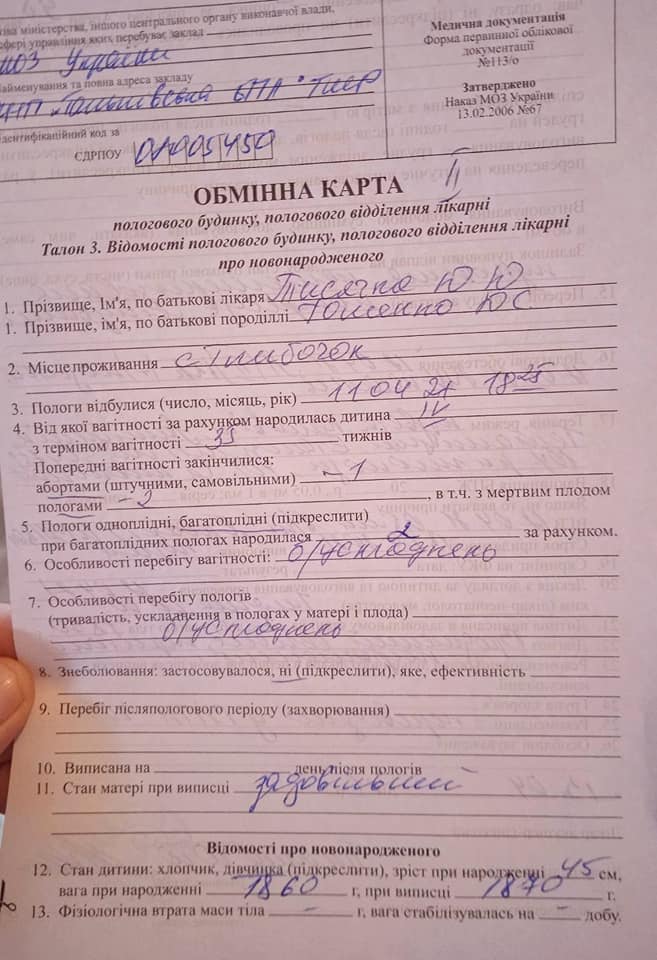 ва міністерства, іншого центрального органу виконавчої влади,
сфері управління яких перебуває заклад
МОЗ України
Найменування та повна адреса закладу
Ідентифікаційний код за
ЄДРПОУ 01005450
Медична документація
Форма первинної облікової
документації
№113/о
Затверджено
Наказ МОЗ України
13.02.2006 №67
ОБМІННА КАРТА II
пологового будинку, пологового відділення лікарні
Талон 3. Відомості пологового будинку, пологового відділення лікарні
про новонародженого
1. Прізвище, Ім'я, по батькові лікаря Тисячна Ю Ю
1. Прізвище, ім'я, по батькові породіллі Ю С
2. Місце проживання с Глибочок
3. Пологи відбулися (число, місяць, рік) 11 04 21 18 25
4. Від якої вагітності за рахунком народилась дитина IV
з терміном вагітності 35 тижнів
Попередні вагітності закінчилися:
абортами (штучними, самовільними) - 1
пологами - 2, в т.ч. з мертвим плодом
5. Пологи одноплідні, багатоплідні (підкреслити)
при багатоплідних пологах народилася 2 за рахунком.
6. Особливості перебігу вагітності: б/ускладнень
7. Особливості перебігу пологів
(тривалість, ускладнення в пологах у матері і плода)
б/ускладнень
8. Знеболювання: застосовувалося, ні (підкреслити), яке, ефективність
9. Перебіг післяпологового періоду (захворювання)
10. Виписана на день після пологів
11. Стан матері при виписці задовільний
Відомості про новонародженого
12. Стан дитини: хлопчик, дівчинка (підкреслити), зріст при народженні 45 см,
вага при народженні 1860 г, при виписці 1870 г.
13. Фізіологічна втрата маси тіла - г, вага стабілізувалась на - добу.